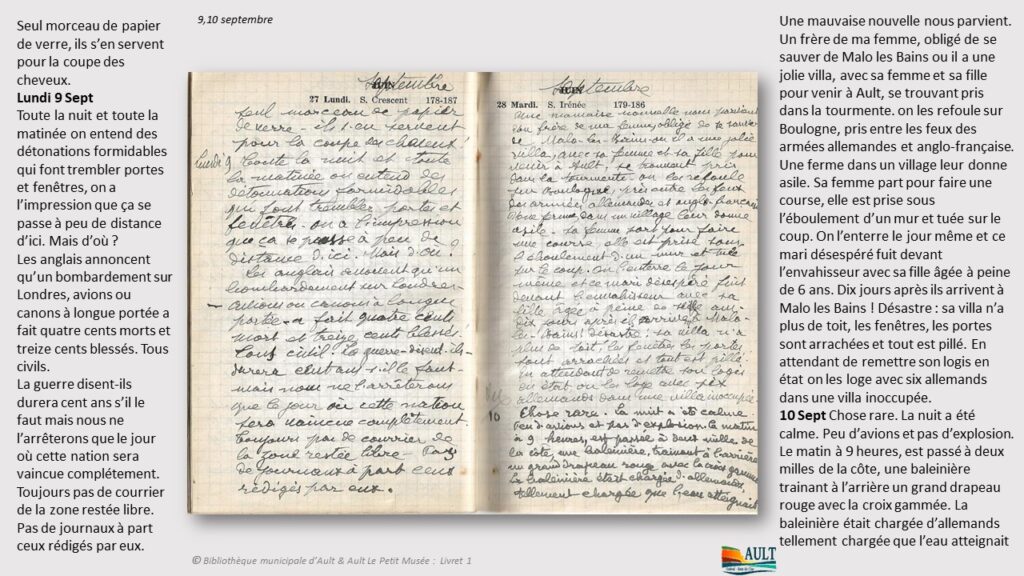 9,10 septembre
Seul morceau de papier
de verre, ils s’en servent
pour la coupe des
cheveux.
Lundi 9 Sept
Toute la nuit et toute la
matinée on entend des
détonations formidables
qui font trembler portes
et fenêtres, on a
l’impression que ça se
passe à peu de distance
d’ici. Mais d’où ?
Les anglais annoncent
qu’un bombardement sur
Londres, avions ou
canons à longue portée a
fait quatre cents morts et
treize cents blessés. Tous
civils.
La guerre disent-ils
durera cent ans s’il le
faut mais nous ne
l’arrêterons que le jour
où cette nation sera
vaincue complétement.
Toujours pas de courrier
de la zone restée libre.
Pas de journaux à part
ceux rédigés par eux.
Septembre
27 Lundi. S. Crescent 178-187
seul morceau de papier
de verre - ils s'en servent
pour la coupe des cheveux!
Lundi 9 Toute la nuit et toute
la matinée on entend des
détonations formidables
qui font trembler portes et
fenêtres - on a l'impression
que ça se passe à peu de
distance d'ici. Mais d'où.
Les anglais annoncent qu'un
bombardement sur Londres
avions ou canons à longue
portée - a fait quatre cent
mort et treize cent blessés
tous civils. La guerre - disent-ils
durera cent ans s'il le faut
mais nous ne l'arrêterons
que le jour où cette nation
sera vaincue complètement.
Toujours pas de courrier de
la zone restée libre - Pas
de journaux à part ceux
rédigés par eux.
Septembre
28 Mardi. S. Irénée 179-186
Une mauvaise nouvelle nous parvient
un frère de ma femme, obligé de se sauver
de Malo-les-Bains ou il a une jolie
villa, avec sa femme et sa fille pour
venir à Ault, se trouvant pris
dans la tourmente - on les refoule
sur Boulogne, pris entre les feux
des armées allemandes et anglo-française
Une ferme dans un village leur donne
asile - Sa femme part pour faire
une course, elle est prise sous
l'éboulement d'un mur et tuée
sur le coup. On l'enterre le jour
même et ce mari désespéré fuit
devant l'envahisseur avec sa
fille âgée à peine de 6 ans
dix jours après ils arrivent à Malo-
les-Bains! désastre: sa villa n'a
plus de toit, les fenêtres les portes
sont arrachées et tout est pillé.
En attendant de remettre son logis
en état on les loge avec six
allemands dans une villa inoccupée.
10 Chose rare. La nuit a été calme
Peu d'avions et pas d'explosion. Le matin
à 9 heures, est passé à deux milles de
la côte, une baleinière, trainant à l'arrière
un grand drapeau rouge avec la croix gammée
La baleinière était chargée d'allemands,
tellement chargée que l'eau atteignait
Une mauvaise nouvelle nous parvient.
Un frère de ma femme, obligé de se
sauver de Malo les Bains ou il a une
jolie villa, avec sa femme et sa fille
pour venir à Ault, se trouvant pris
dans la tourmente. on les refoule sur
Boulogne, pris entre les feux des
armées allemandes et anglo-française.
Une ferme dans un village leur donne
asile. Sa femme part pour faire une
course, elle est prise sous
l’éboulement d’un mur et tuée sur le
coup. On l’enterre le jour même et ce
mari désespéré fuit devant
l’envahisseur avec sa fille âgée à peine
de 6 ans. Dix jours après ils arrivent à
Malo les Bains ! Désastre : sa villa n’a
plus de toit, les fenêtres, les portes
sont arrachées et tout est pillé. En
attendant de remettre son logis en
état on les loge avec six allemands
dans une villa inoccupée.
10 Sept Chose rare. La nuit a été
calme. Peu d’avions et pas d’explosion.
Le matin à 9 heures, est passé à deux
milles de la côte, une baleinière
trainant à l’arrière un grand drapeau
rouge avec la croix gammée. La
baleinière était chargée d’allemands
tellement chargée que l’eau atteignait
© Bibliothèque municipale d’Ault & Ault Le Petit Musée : Livret 1
AULT